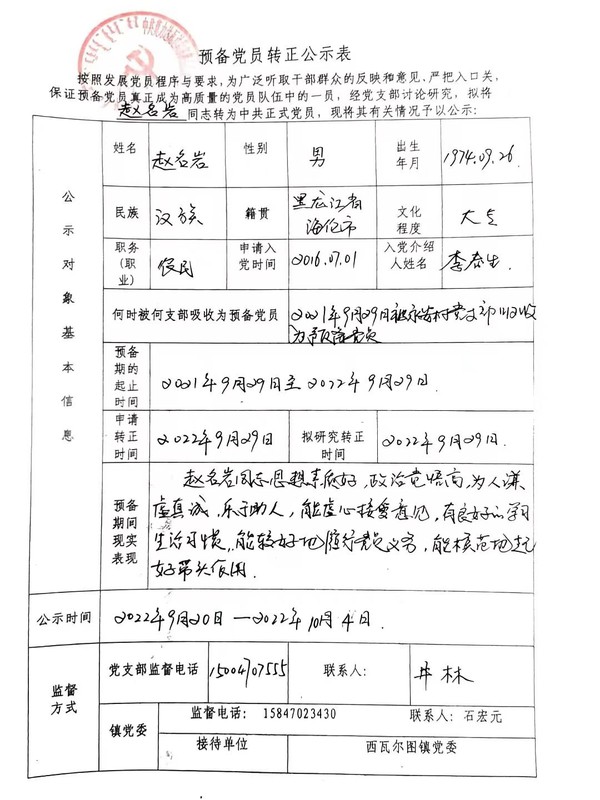 预备党员转正公示表
按照发展党员程序与要求,为广泛听取干部群众的反映和意见,严把入口关,
保证预备党员真正成为高质量的党员队伍中的一员,经党支部讨论研究,拟将
赵名岩 同志转为中共正式党员,现将其有关情况予以公示:
公示对象基本信息
姓名 赵名岩 性别 男 出生年月 1974.09.26
民族 汉族 籍贯 黑龙江省海伦市 文化程度 大专
职务(职业) 农民 申请入党时间 2016.07.01 入党介绍人姓名 李泰生
何时被何支部吸收为预备党员 2021年9月29日被 村党支部吸收
为预备党员
预备期的起止时间 2021年9月29日至2022年9月29日
申请转正时间 2022年9月29日 拟研究转正时间 2022年9月29日.
预备期间现实表现
赵名岩同志思想素质好,政治觉悟高,为人谦
虚真诚,乐于助人,能虚心接受意见,有良好的学习
生活习惯,能较好地履行党员义务,能模范地起
好带头作用.
公示时间 2022年9月20日—2022年10月4日.
监督方式
党支部监督电话 15004707555 联系人: 井林
镇党委 监督电话: 15847023430 联系人: 石宏元
接待单位 西瓦尔图镇党委